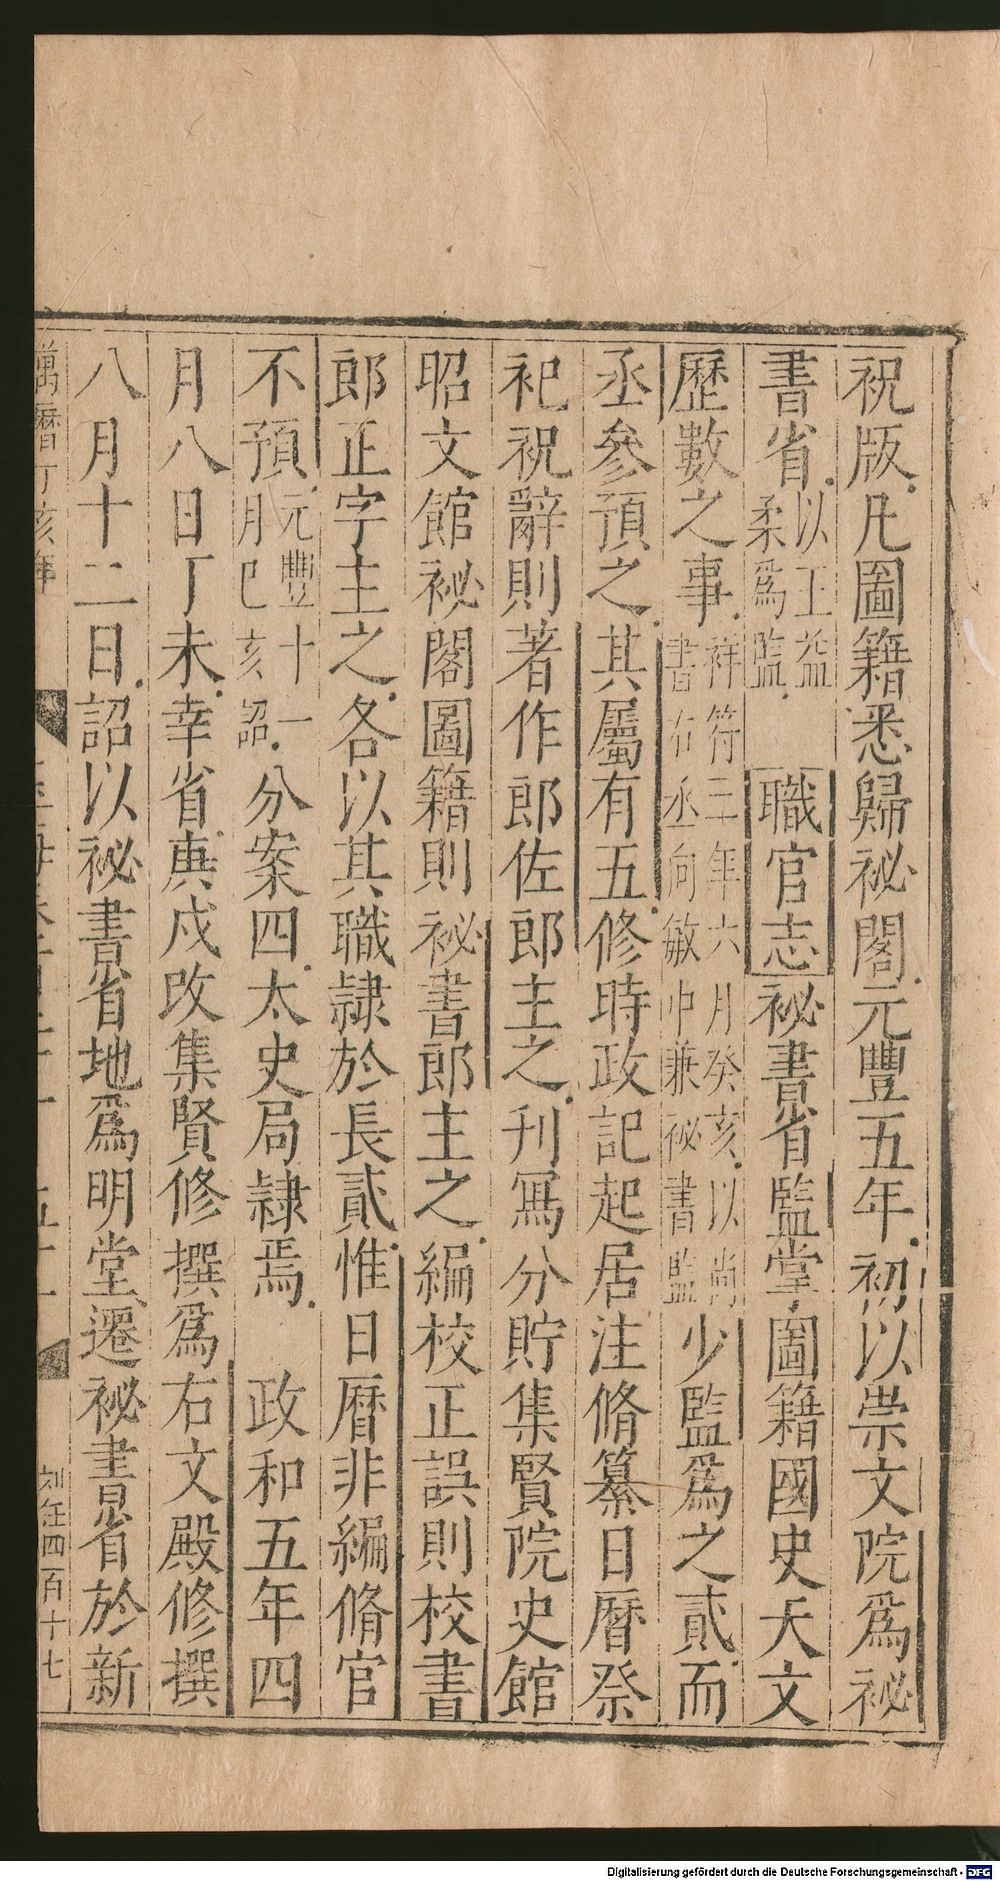 祝版凡圖籍悉歸祕閣元豐五年初以崇文院爲祕
書省以王益柔爲監職官志祕書省監掌圖籍國史天文
歷數之事祥符二年六月癸亥以尚書右丞向敏中兼祕書監少監爲之貳而
丞參預之其屬有五修時政記起居注脩纂日曆祭
祀祝辭則著作郎佐郎主之刋寫分貯集賢院史館
昭文館祕閣圖籍則祕書郎主之編校正誤則校書
郎正字主之各以其職隷於長貳惟日曆非編脩官
不預元豐十一月巳亥詔分案四太史局隷焉政和五年四
月八日丁未幸省庚戍改集賢修撰爲右文殿修撰
八月十二日詔以祕書省地爲明堂遷祕書省於新
萬曆丁亥年
刘任四百十七
Digitalisierung gefördert durch die Deutsche Forschungsgemeinschaft - DFG